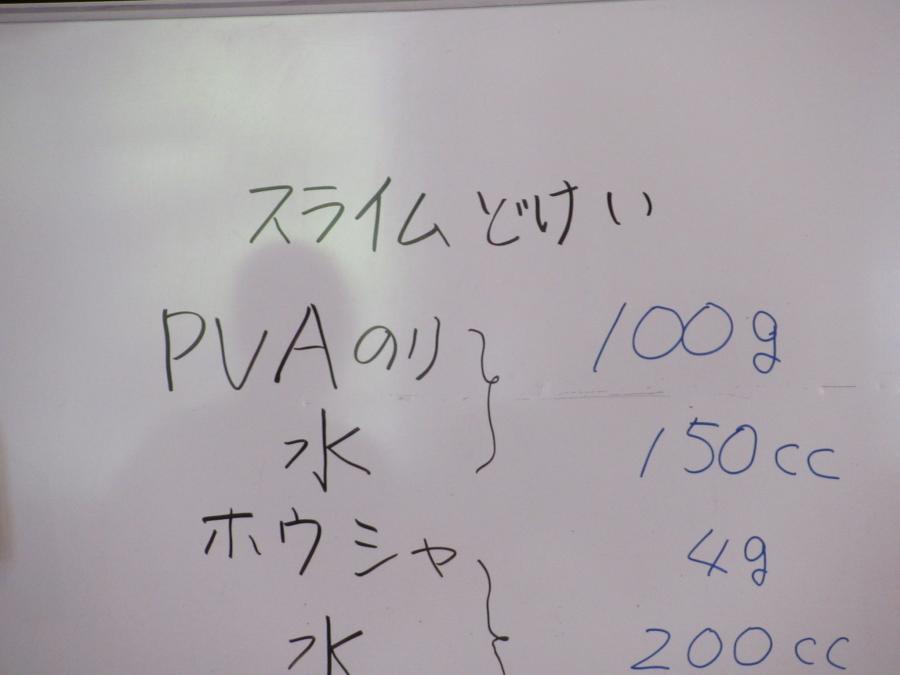 スライムどけい
PVAのり 100g
水 150cc
ホウシャ 4g
水 200cc